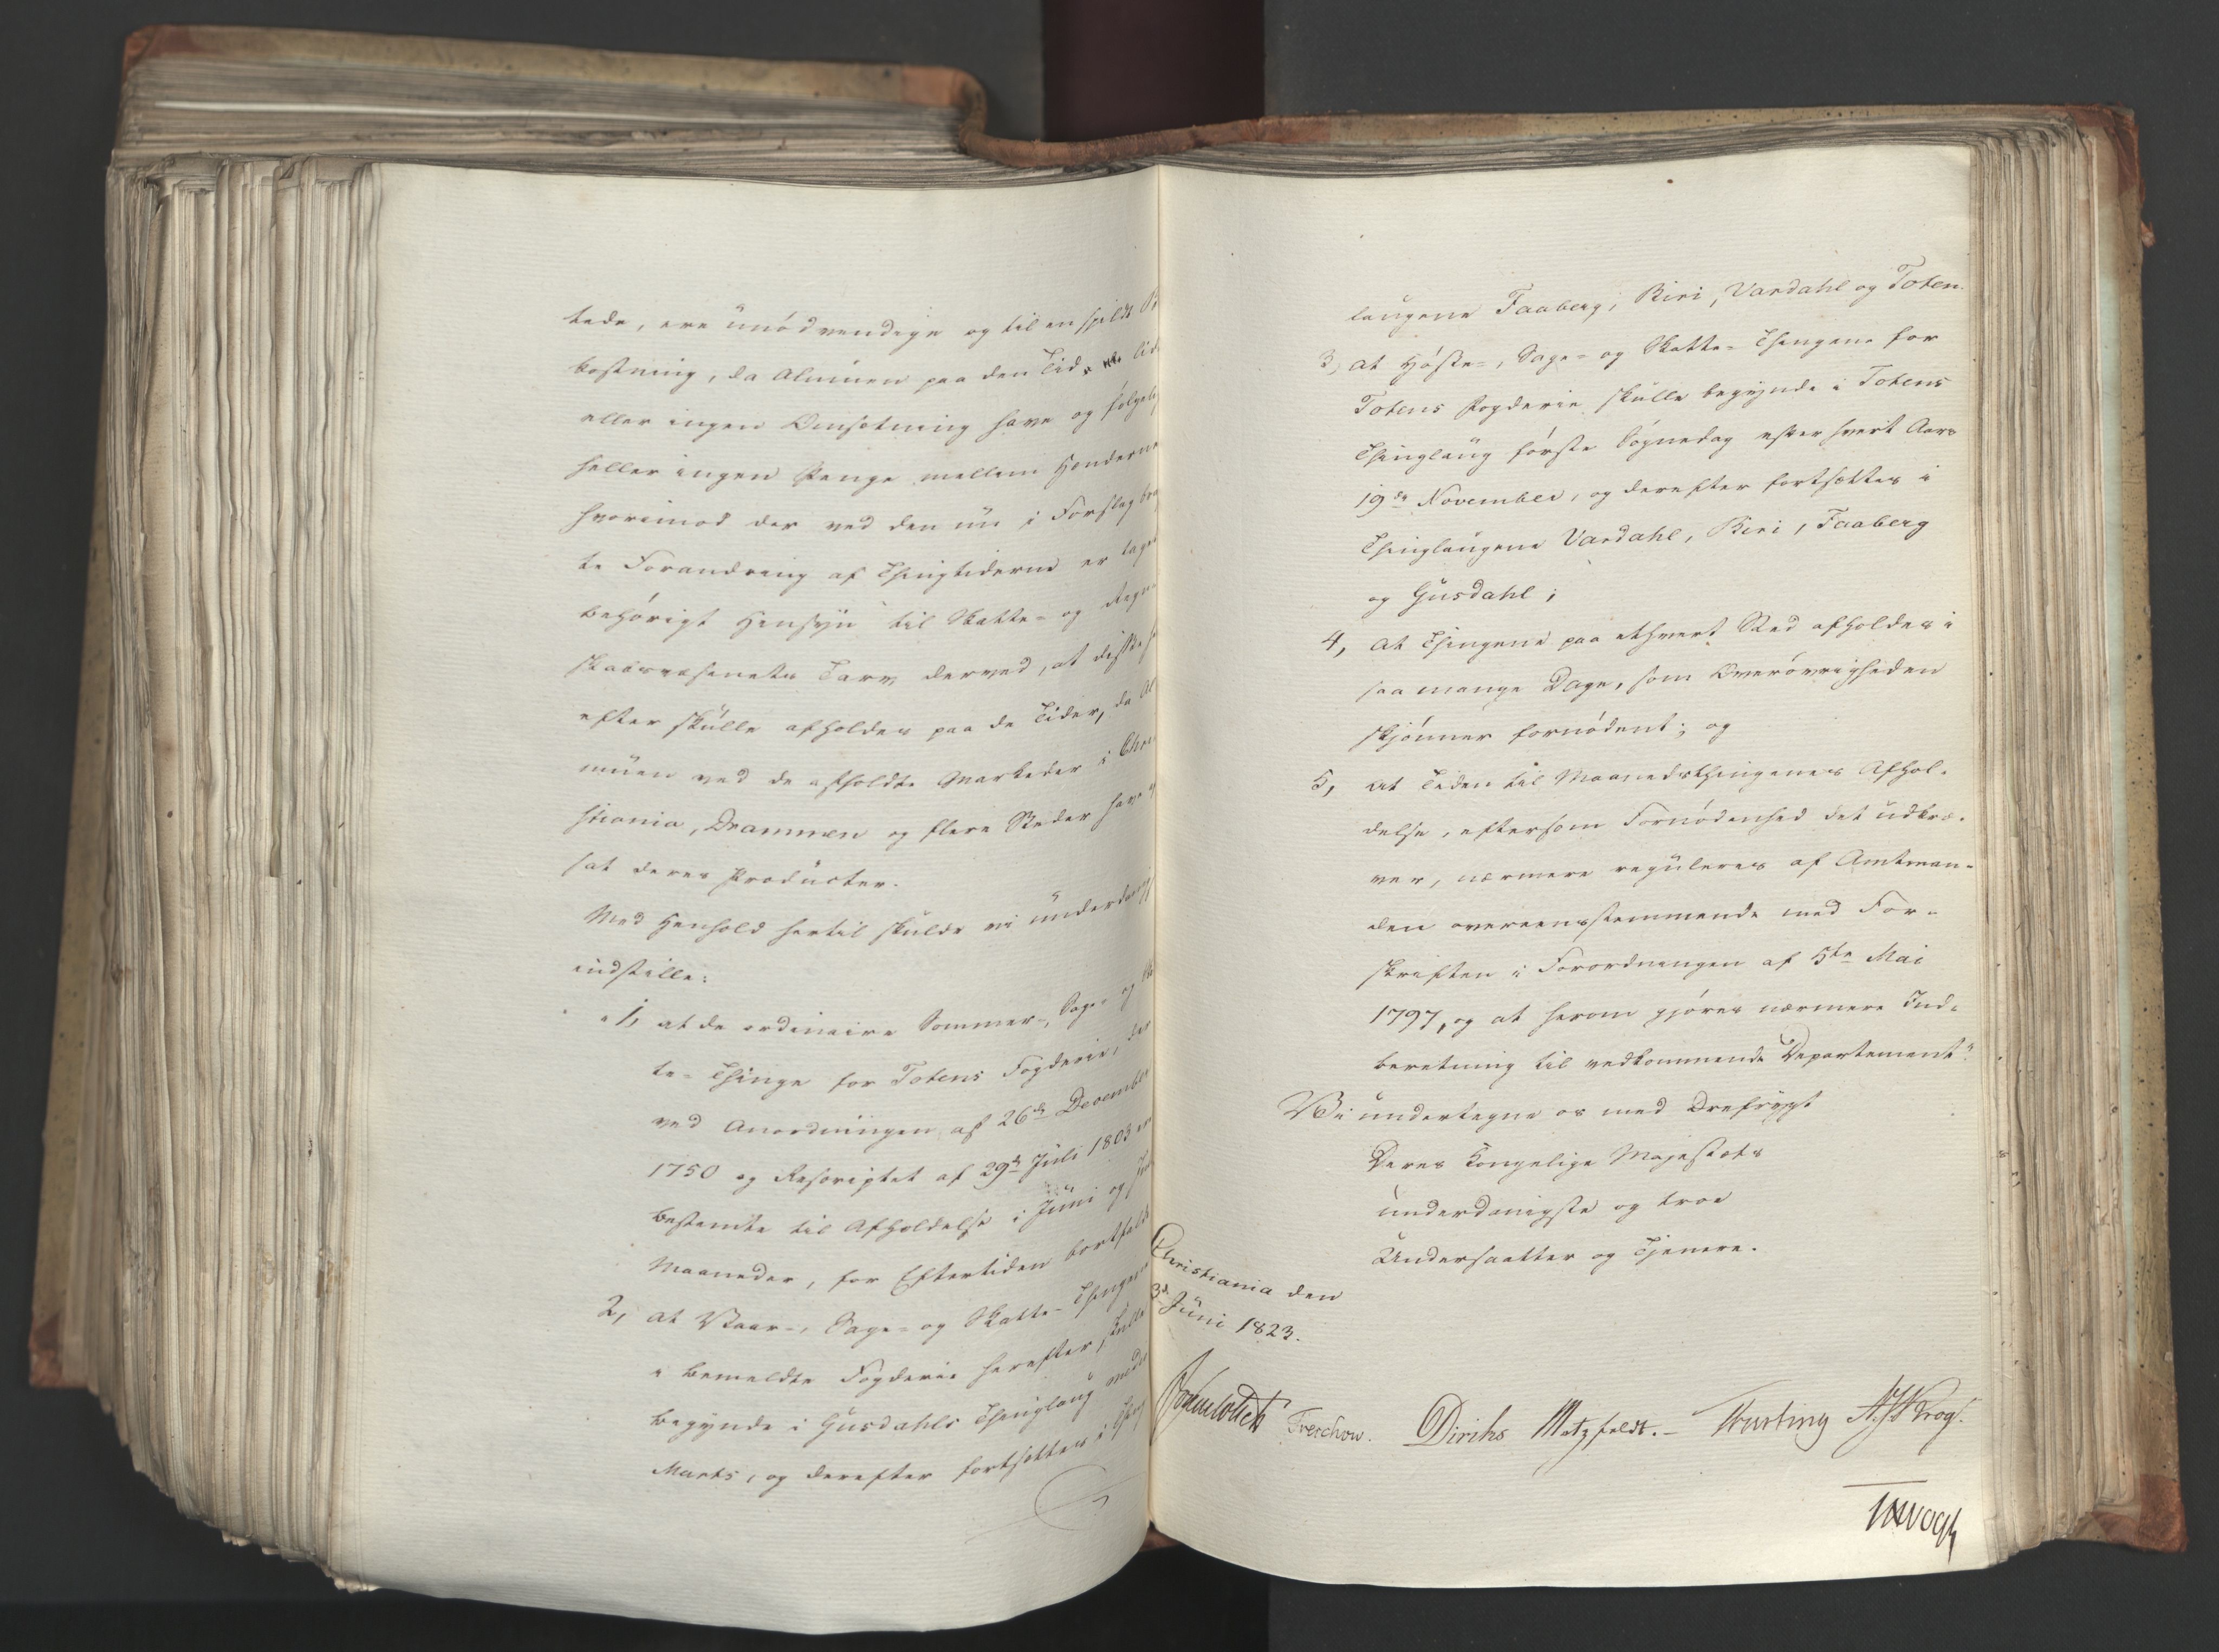 tede, ere unödvendige og til en spildt B
kostning, da Almuen paa den Tid liden
eller ingen Omsetning have og fölgelig
heller ingen Penge mellem Hænderne
hvorimod der ved den nu i Forslag brag
te Forandring af Thingtiderne er taget
behörigt Hensyn til Skatte- og Regn-
skabsvæsenets Tarv derved, at disse her
efter skulle afholdes paa de Tider, da Al
muen ved de afholdte Markeder i Chri
stiania, Drammen og flere Steder have
sat deres Producter.
Med Henhold hertil skulde vi underdanigst
indstille:
"1, at de ordinaire Sommer-, Sage- og Skat
te- Thinge for Totens Fogderie, der
ved Anordningen af 26de December
1750 og Rescriptet af 29de Juli 1803 ere
bestemte til Afholdelse i Juni og Juli
Maaneder, for Eftertiden bortfalde
2, at Vaar-, Sage- og Skatte- Thingene
i bemeldte Fogderie herefter skulle
begynde i Gusdahls Thinglaug medio
Marts, og derefter fortsættes i Thing
laugene Faaberg, Biri, Vardahl og Toten.
3, at Höste-, Sage- og Skatte- Thingene for
Totens Fogderie skulle begynde i Totens
Thinglaug förste Sögnedag efter hvert Aars
19de November, og derefter fortsættes i
Thinglaugene Vardahl, Biri, Faaberg
og Gusdahl;
4, at Thingene paa ethvert Sted afholdes i
saa mange Dage, som Överövrigheden
skjönner fornödent; og
5, at Tiden til Maanedsthingenes Afhol-
delse, eftersom Fornödenhed det udkræ-
ver, nærmere reguleres af Amtman-
den overeensstemmende med For-
skriften i Forordningen af 5te Mai
1797, og at herom gjöres nærmere Ind-
beretning til vedkommende Departement".
Vi undertegne os med Ærefrygt
Deres Kongelige Majestæts
underdanigste og troe
Undersaatter og Tjenere.
Christiania den
3de Juni 1823.
Sommerhielm Treschow. Diriks Motzfeldt. - Fasting A. S. Krog.
Vogt